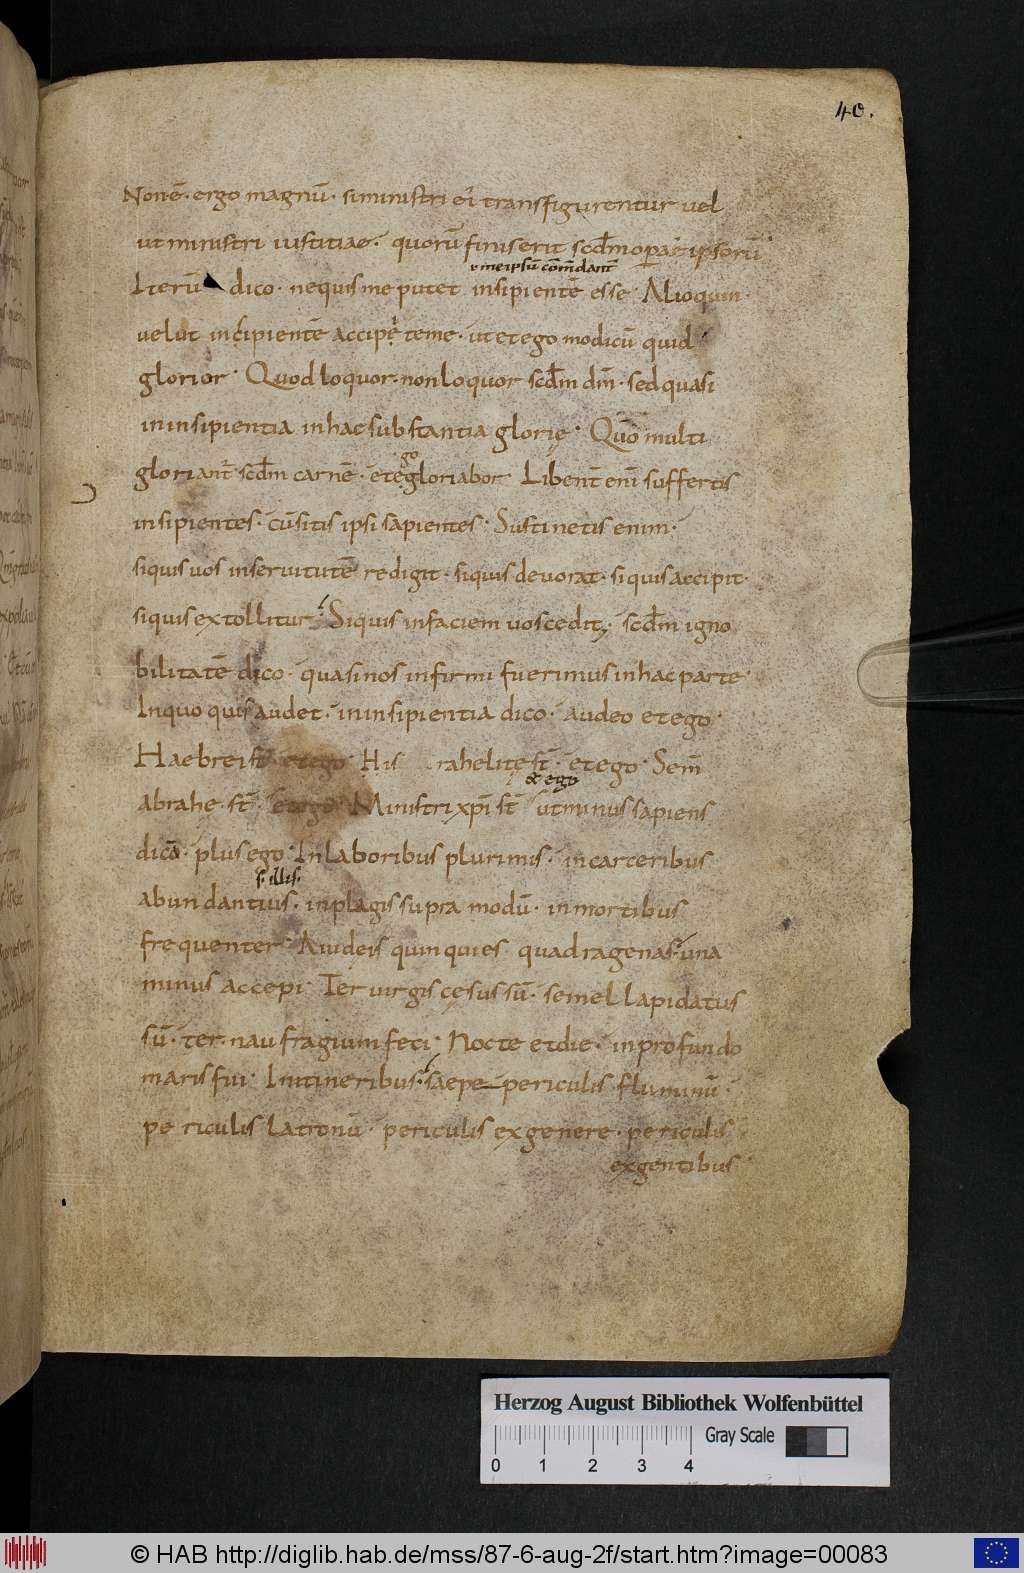 40.
Non ē · ergo magnū · si ministri ei᷒ transfigurentur vel
ut ministri iustitiae · quorū finis erit scd̄m opera ipsorū
meipsū cōm̄dant̄
Iterū dico · nequis me putet insipientē esse · Alioquin ·
velut insipientē accipete me · ut et ego modicū quid
glorior · Quod loquor · non loquor scd̄m dm̄ · sed quasi
in insipientia in hac substantia glorię · Qūo multi
gloriant̄ scd̄m carnē · et ego gloriabor Libent̄ enī suffertis
insipientes · cū sitis ipsi sapientes · Sustinetis enim ·
siquis vos in servitutē redigit · siquis devorat · siquis accipit ·
siquis extollitur · Siquis in faciem vos cedit · scd̄m igno
bilitatē dico · quasi nos infirmi fuerimus in hac parte ·
In quo quis audet · in insipientia dico · audeo et ego ·
Haebrei st̄ et ego His rahelitę st̄ · et ego · Sem̄
& ego
abrahe · st̄ · et ego Ministri xp̄i st̄ ut minus sapiens
dico · plus ego · In laboribus plurimis · in carceribus
s · illis ·
abundantius · in plagis supra modū · in mortibus
frequenter · A iudeis quinquies quadragenas · una
minus accepi · Ter virgis cęsus sū · semel lapidatus
sū · ter · naufragium feci · Nocte et die · in profundo
maris fui · In itineribus · saepe periculis fluminū ·
periculis latronū · periculis ex genere · periculis
ex gentibus ·
Herzog August Bibliothek Wolfenbüttel
Gray Scale
0 1 2 3 4
© HAB http://diglib.hab.de/mss/87-6-aug-2f/start.htm?image=00083